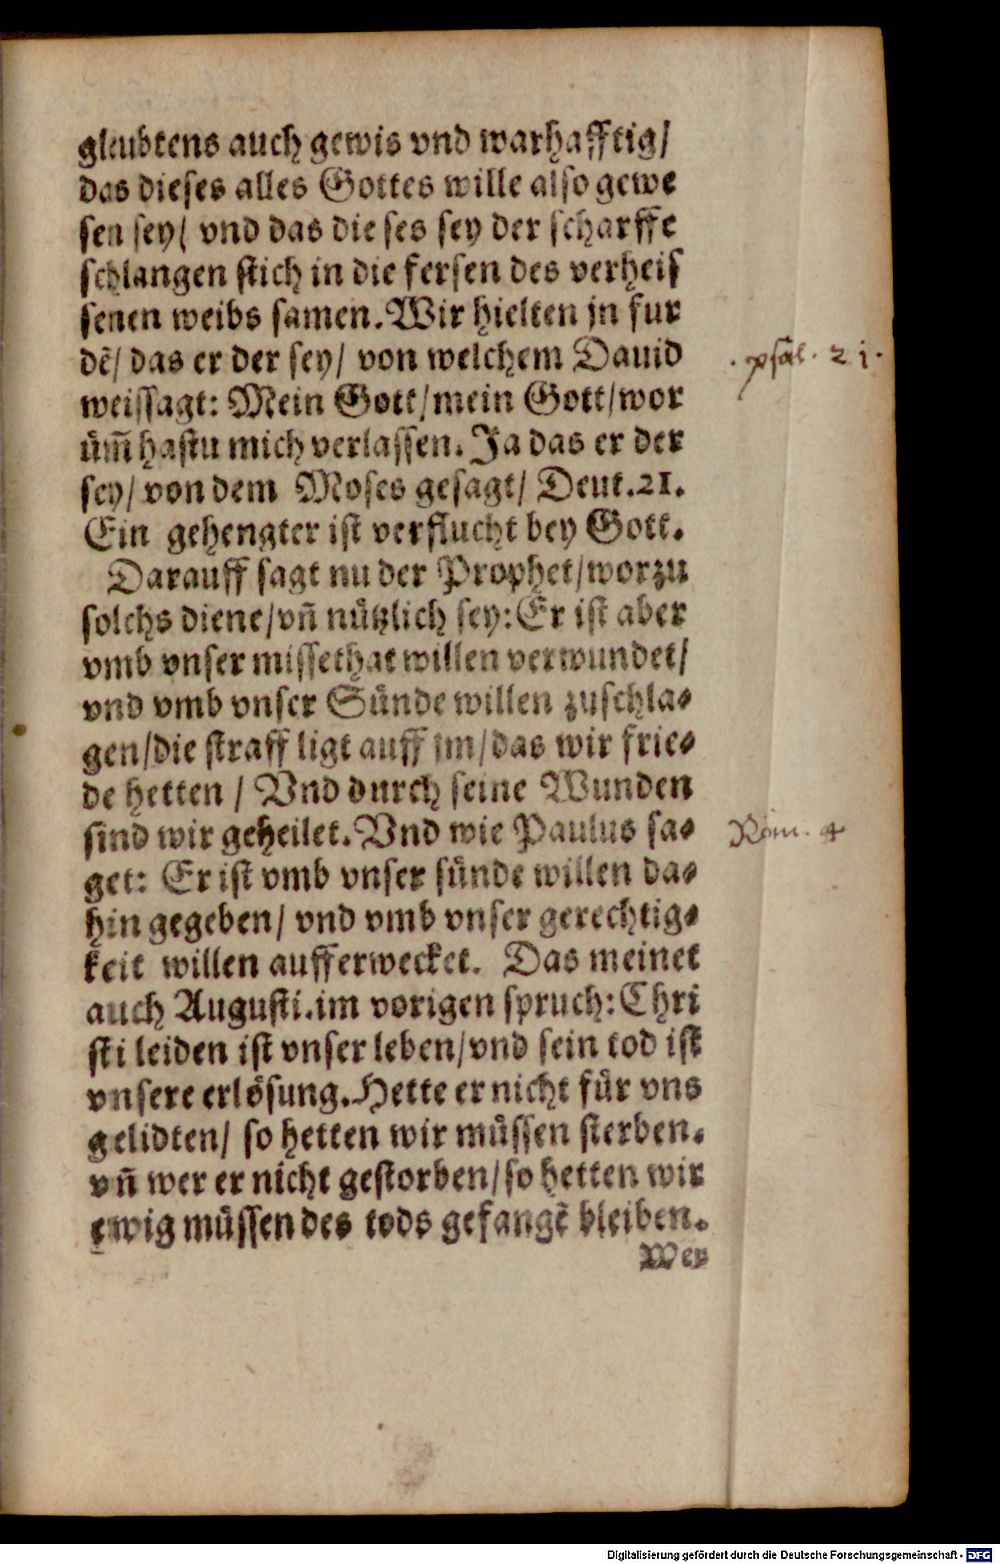 gleubtens auch gewis vnd warhafftig/
das dieses alles Gottes wille also gewe
sen sey/ vnd das dieses sey der scharffe
schlangen stich in die fersen des verheis
senen weibs samen. Wir hielten jn fur
dẽ/ das er der sey/ von welchem Dauid
. psal. 21.
weissagt: Mein Gott/ mein Gott/ wor
üm̃ hastu mich verlassen. Ja das er der
sey/ von dem Moses gesagt/ Deut. 21.
Ein gehengter ist verflucht bey Gott.
Darauff sagt nu der Prophet/ worzu
solchs diene/ vñ nützlich sey: Er ist aber
vmb vnser missethat willen verwundet/
vnd vmb vnser Sünde willen zuschla-
gen/ die straff ligt auff jm/ das wir frie-
de hetten / Vnd durch seine Wunden
sind wir geheilet. Vnd wie Paulus sa-
Rom. 4
get: Er ist vmb vnser sünde willen da-
hin gegeben/ vnd vmb vnser gerechtig-
keit willen aufferwecket. Das meinet
auch Augusti. im vorigen spruch: Chri
sti leiden ist vnser leben/ vnd sein tod ist
vnsere erlösung. Hette er nicht für vns
gelidten/ so hetten wir müssen sterben.
vñ wer er nicht gestorben/ so hetten wir
ewig müssen des tods gefangẽ bleiben.
Wey
Digitalisierung gefördert durch die Deutsche Forschungsgemeinschaft - DFG